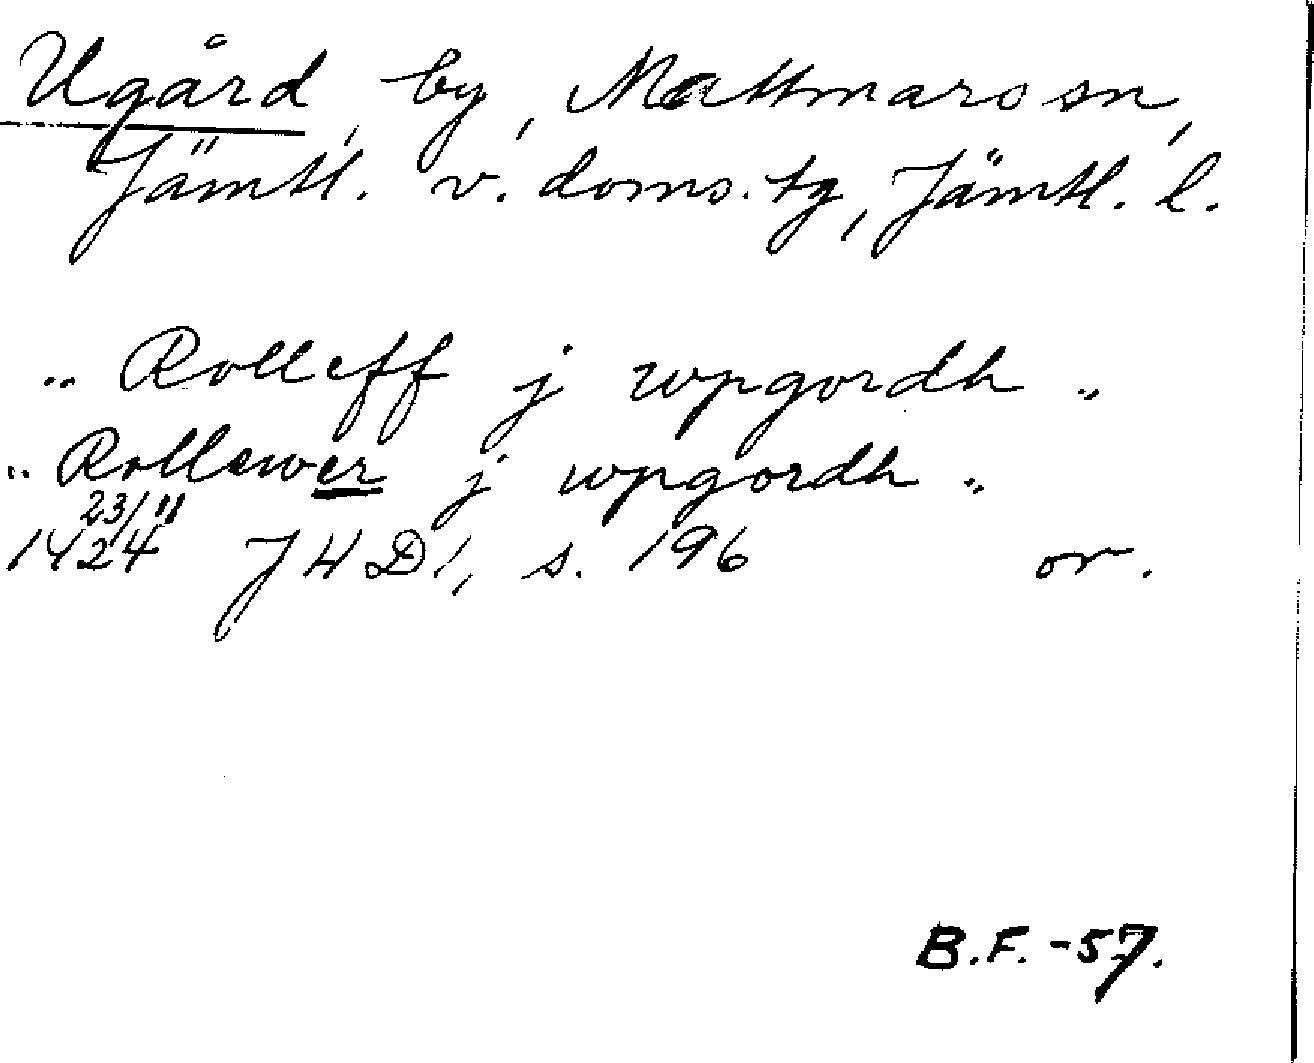 Ugård, by, Mattmars sn,
Jämtl. v. doms. tg, Jämtl. l.
„ Rolleff j wpgordh „
„ Rollewer j wpgordh „
23/11
1424 JHD 1, s. 196 or.
B.F. -57.